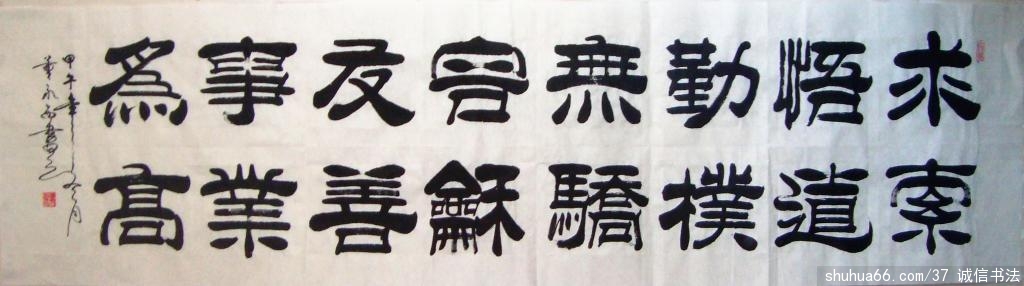 求索
悟道
勤樸
無驕
容龢
友善
事業
爲髙
甲午年之冬月
shuhua66.com/37 诚信书法